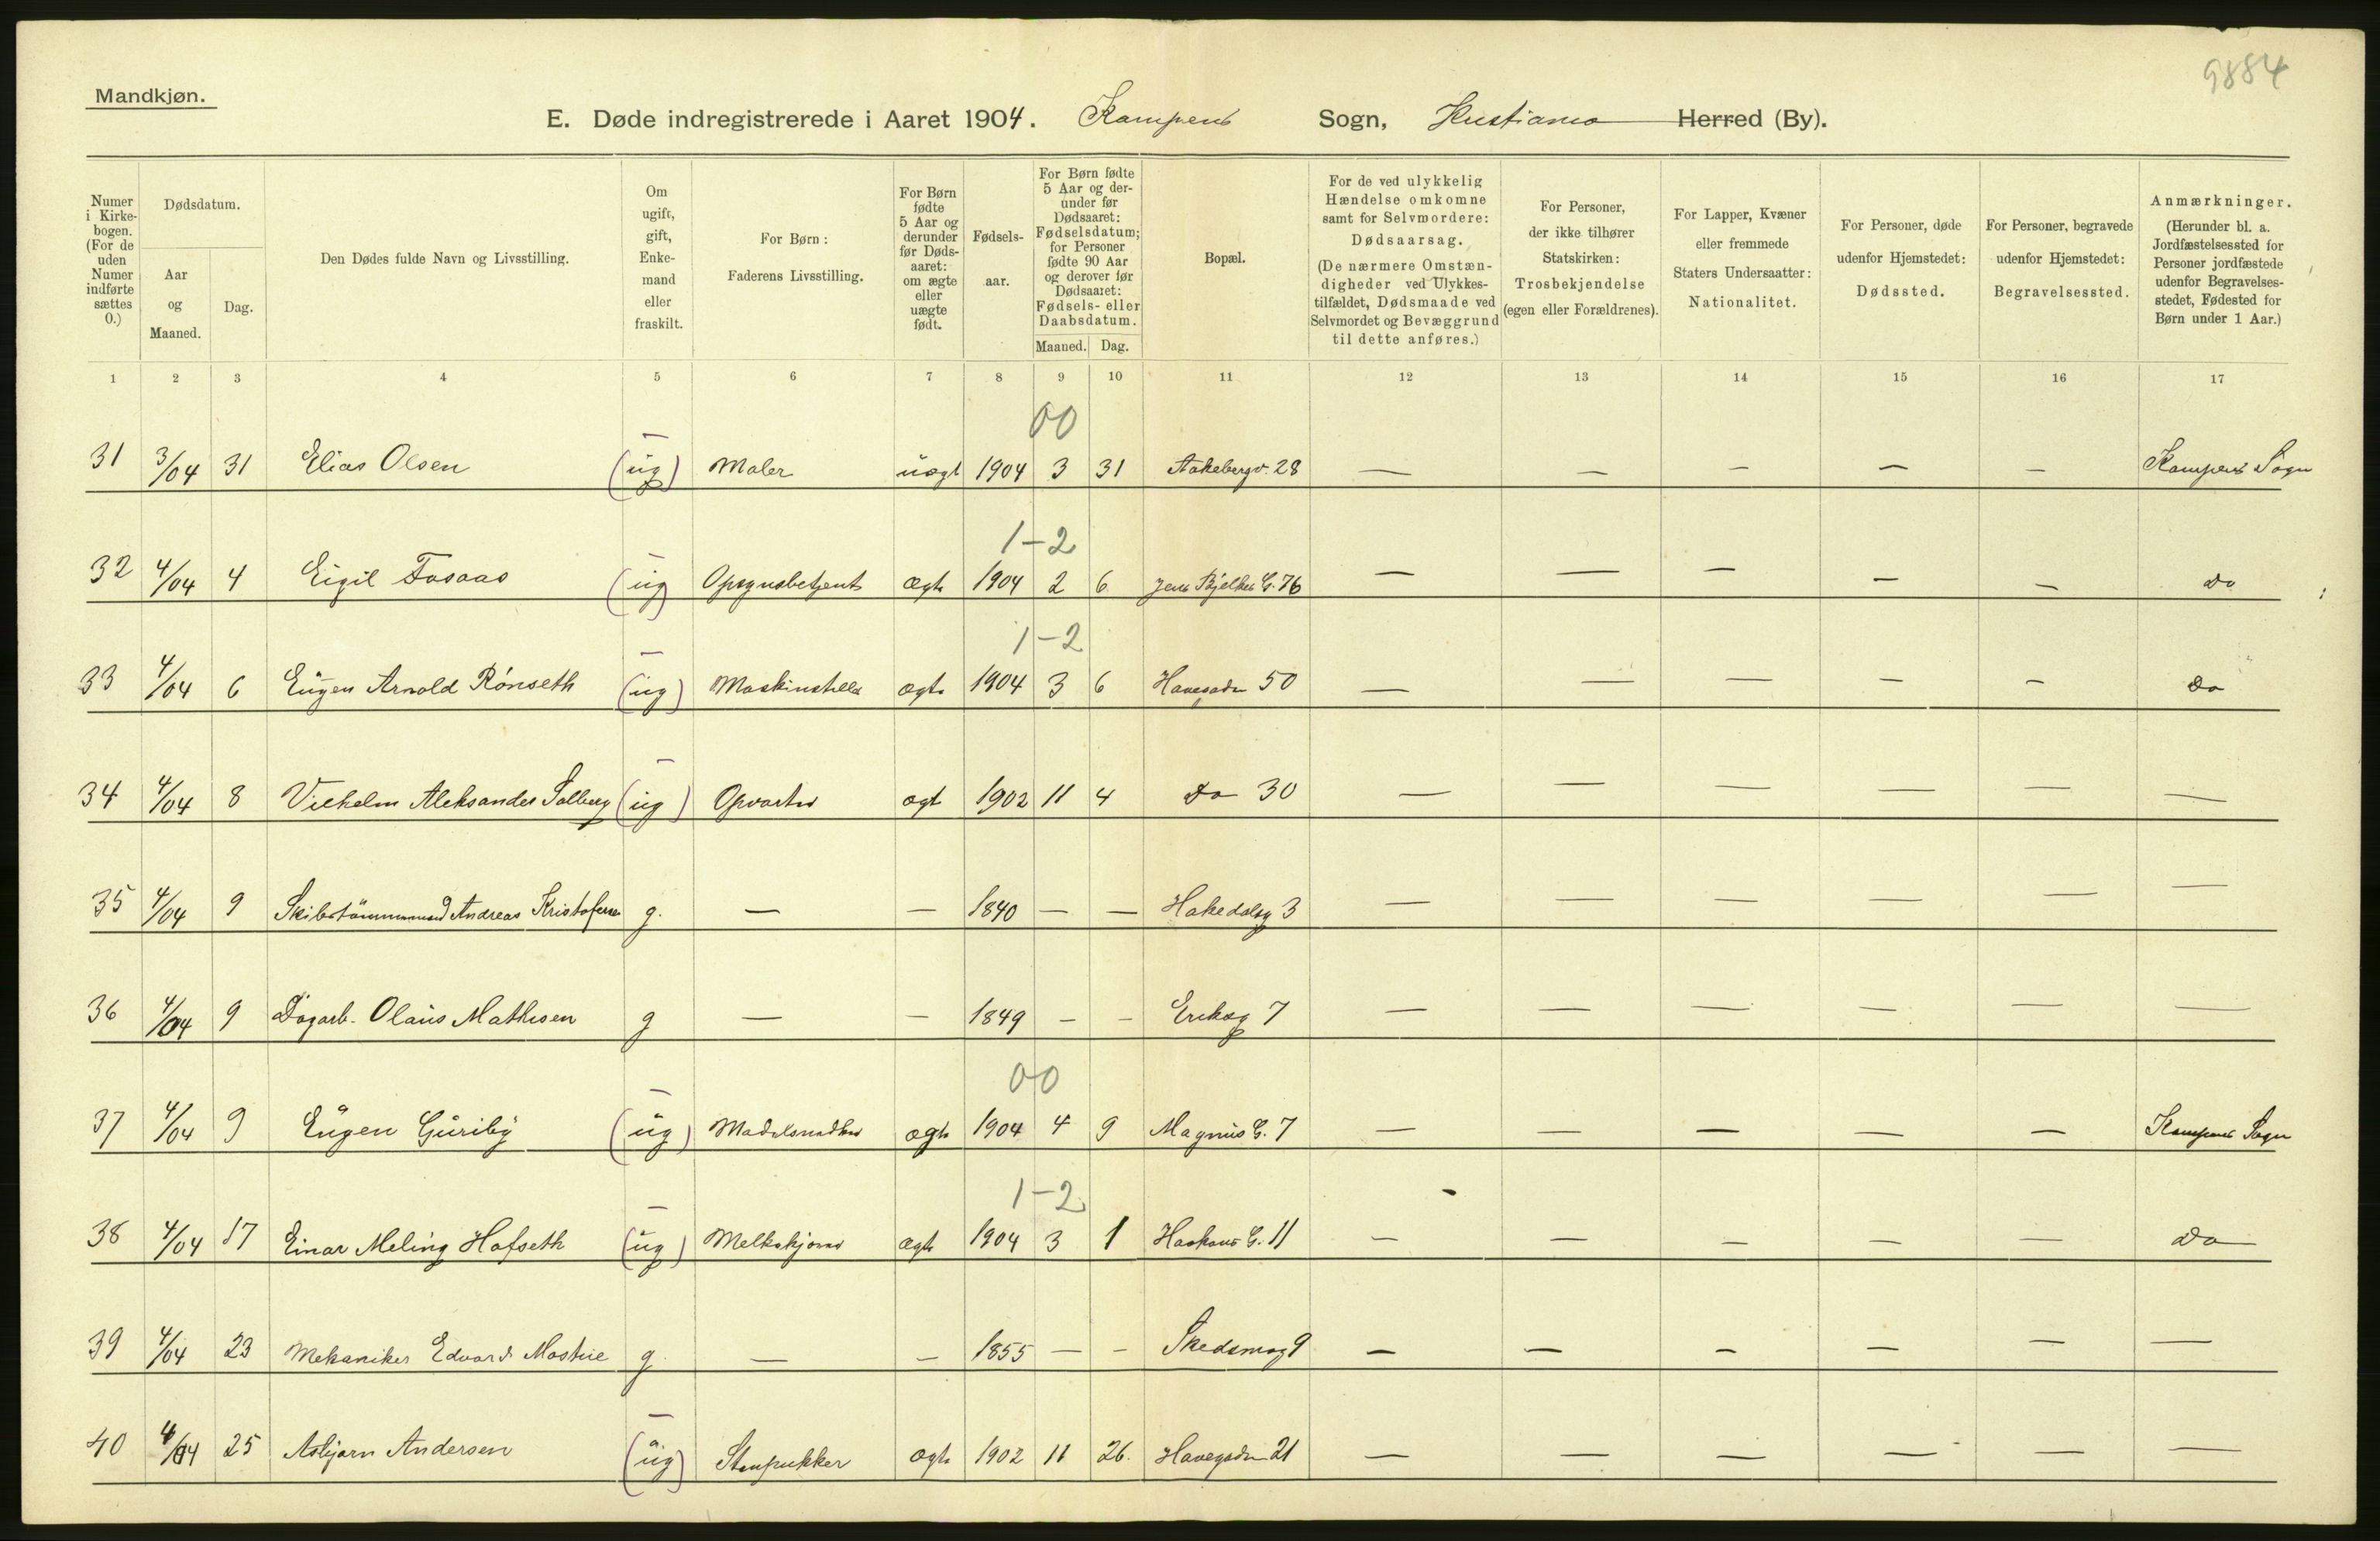 9884
Mandkjøn.
E. Døde indregistrerede i Aaret 1904. Kampens Sogn, Kristiania Herred (By).
Numer i Kirke-bogen. (For de uden Numer indførte sættes 0.) | Dødsdatum. Aar og Maaned. | Dag. | Den Dødes fulde Navn og Livsstilling. | Om ugift, gift, Enke-mand eller fraskilt. | For Børn: Faderens Livsstilling. | For Børn fødte 5 Aar og derunder før Døds-aaret: om ægte eller uægte født. | Fødsels-aar. | For Børn fødte 5 Aar og der-under før Dødsaaret: Fødselsdatum; for Personer fødte 90 Aar og derover før Dødsaaret: Fødsels- eller Daabsdatum. Maaned. | Dag. | Bopæl. | For de ved ulykkelig Hændelse omkomne samt for Selvmordere: Dødsaarsag. (De nærmere Omstæn-digheder ved Ulykkes-tilfældet, Dødsmaade ved Selvmordet og Bevæggrund til dette anføres.) | For Personer, der ikke tilhører Statskirken: Trosbekjendelse (egen eller Forældrenes). | For Lapper, Kvæner eller fremmede Staters Undersaatter: Nationalitet. | For Personer, døde udenfor Hjemstedet: Dødssted. | For Personer, begravede udenfor Hjemstedet: Begravelsessted. | Anmærkninger. (Herunder bl. a. Jordfæstelsessted for Personer jordfæstede udenfor Begravelses-stedet, Fødested for Børn under 1 Aar.)
1 2 3 4 5 6 7 8 9 10 11 12 13 14 15 16 17
00
31 3/04 31 Elias Olsen (ug) Maler uægt 1904 3 31 Aakebergv. 28 — — — — — Kampens Sogn
1-2
32 4/04 4 Eigil Fosaas (ug) Opsynsbetjent ægte 1904 2 6 Jens Bjelkes G. 76 — — — — — Do
1-2
33 4/04 6 Eugen Arnold Rönseth (ug) ægte 1904 3 6 Havegaden 50 — — — — — Do
34 4/04 8 Vilhelm Aleksander Solberg (ug) Opvarter ægt 1902 11 4 Do 30 — — — — — —
35 4/04 9 Skibstömmermand Andreas Kristofersen g. — — 1840 — — Hakedalsg 3 — — — — — —
36 4/04 9 Dagarb. Olaus Mathisen g — — 1849 — — Eriksg 7 — — — — — —
00
37 4/04 9 Eugen Guriby (ug) ægte 1904 4 9 Magnus G. 7 — — — — — Kampens Sogn
1-2
38 4/04 17 Einar Meling Hofseth (ug) Melkekjører ægte 1904 3 1 Haakons G. 11 — — — — — Do
39 4/04 23 Mekaniker Edvard g — — 1855 — — Skedsmog 9 — — — — — —
40 4/04 25 Asbjørn Andersen (ug) Stenpukker ægte 1902 11 26. Havegaden 21 — — — — — —